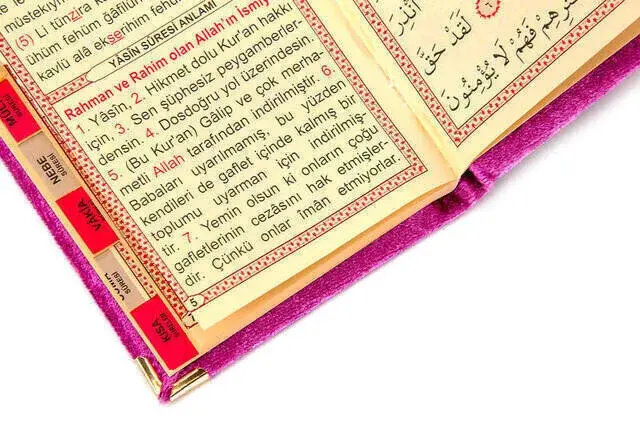 (5) Li tünzira
ühüm fehüm ğâfilûn
kavlü alâ ekserihim fehüm
YÂSİN SÛRESİ ANLAMI
Rahman ve Rahim olan Allah'ın İsmiy
1. Yâsîn. 2. Hikmet dolu Kur'an hakkı
için, 3. Sen şüphesiz peygamberler-
densin. 4. Dosdoğru yol üzerindesin.
5. (Bu Kur'an) Gâlip ve çok merha-
metli Allah tarafından indirilmiştir. 6.
Babaları uyarılmamış, bu yüzden
kendileri de gaflet içinde kalmış bir
toplumu uyarman için indirilmiş-
tir. 7. Yemin olsun ki onların çoğu
gafletlerinin cezâsını hak etmişler-
dir. Çünkü onlar îmân etmiyorlar.
5
لَقَدْ حَقَّ
ثَرِهِمْ فَهُمْ لَا يُؤْمِنُونَ
MÜL
SÛRESİ
NEBE
SÛRESİ
VÂKIA
SÛRESİ
SÛRESİ
KISA
SÛRELER